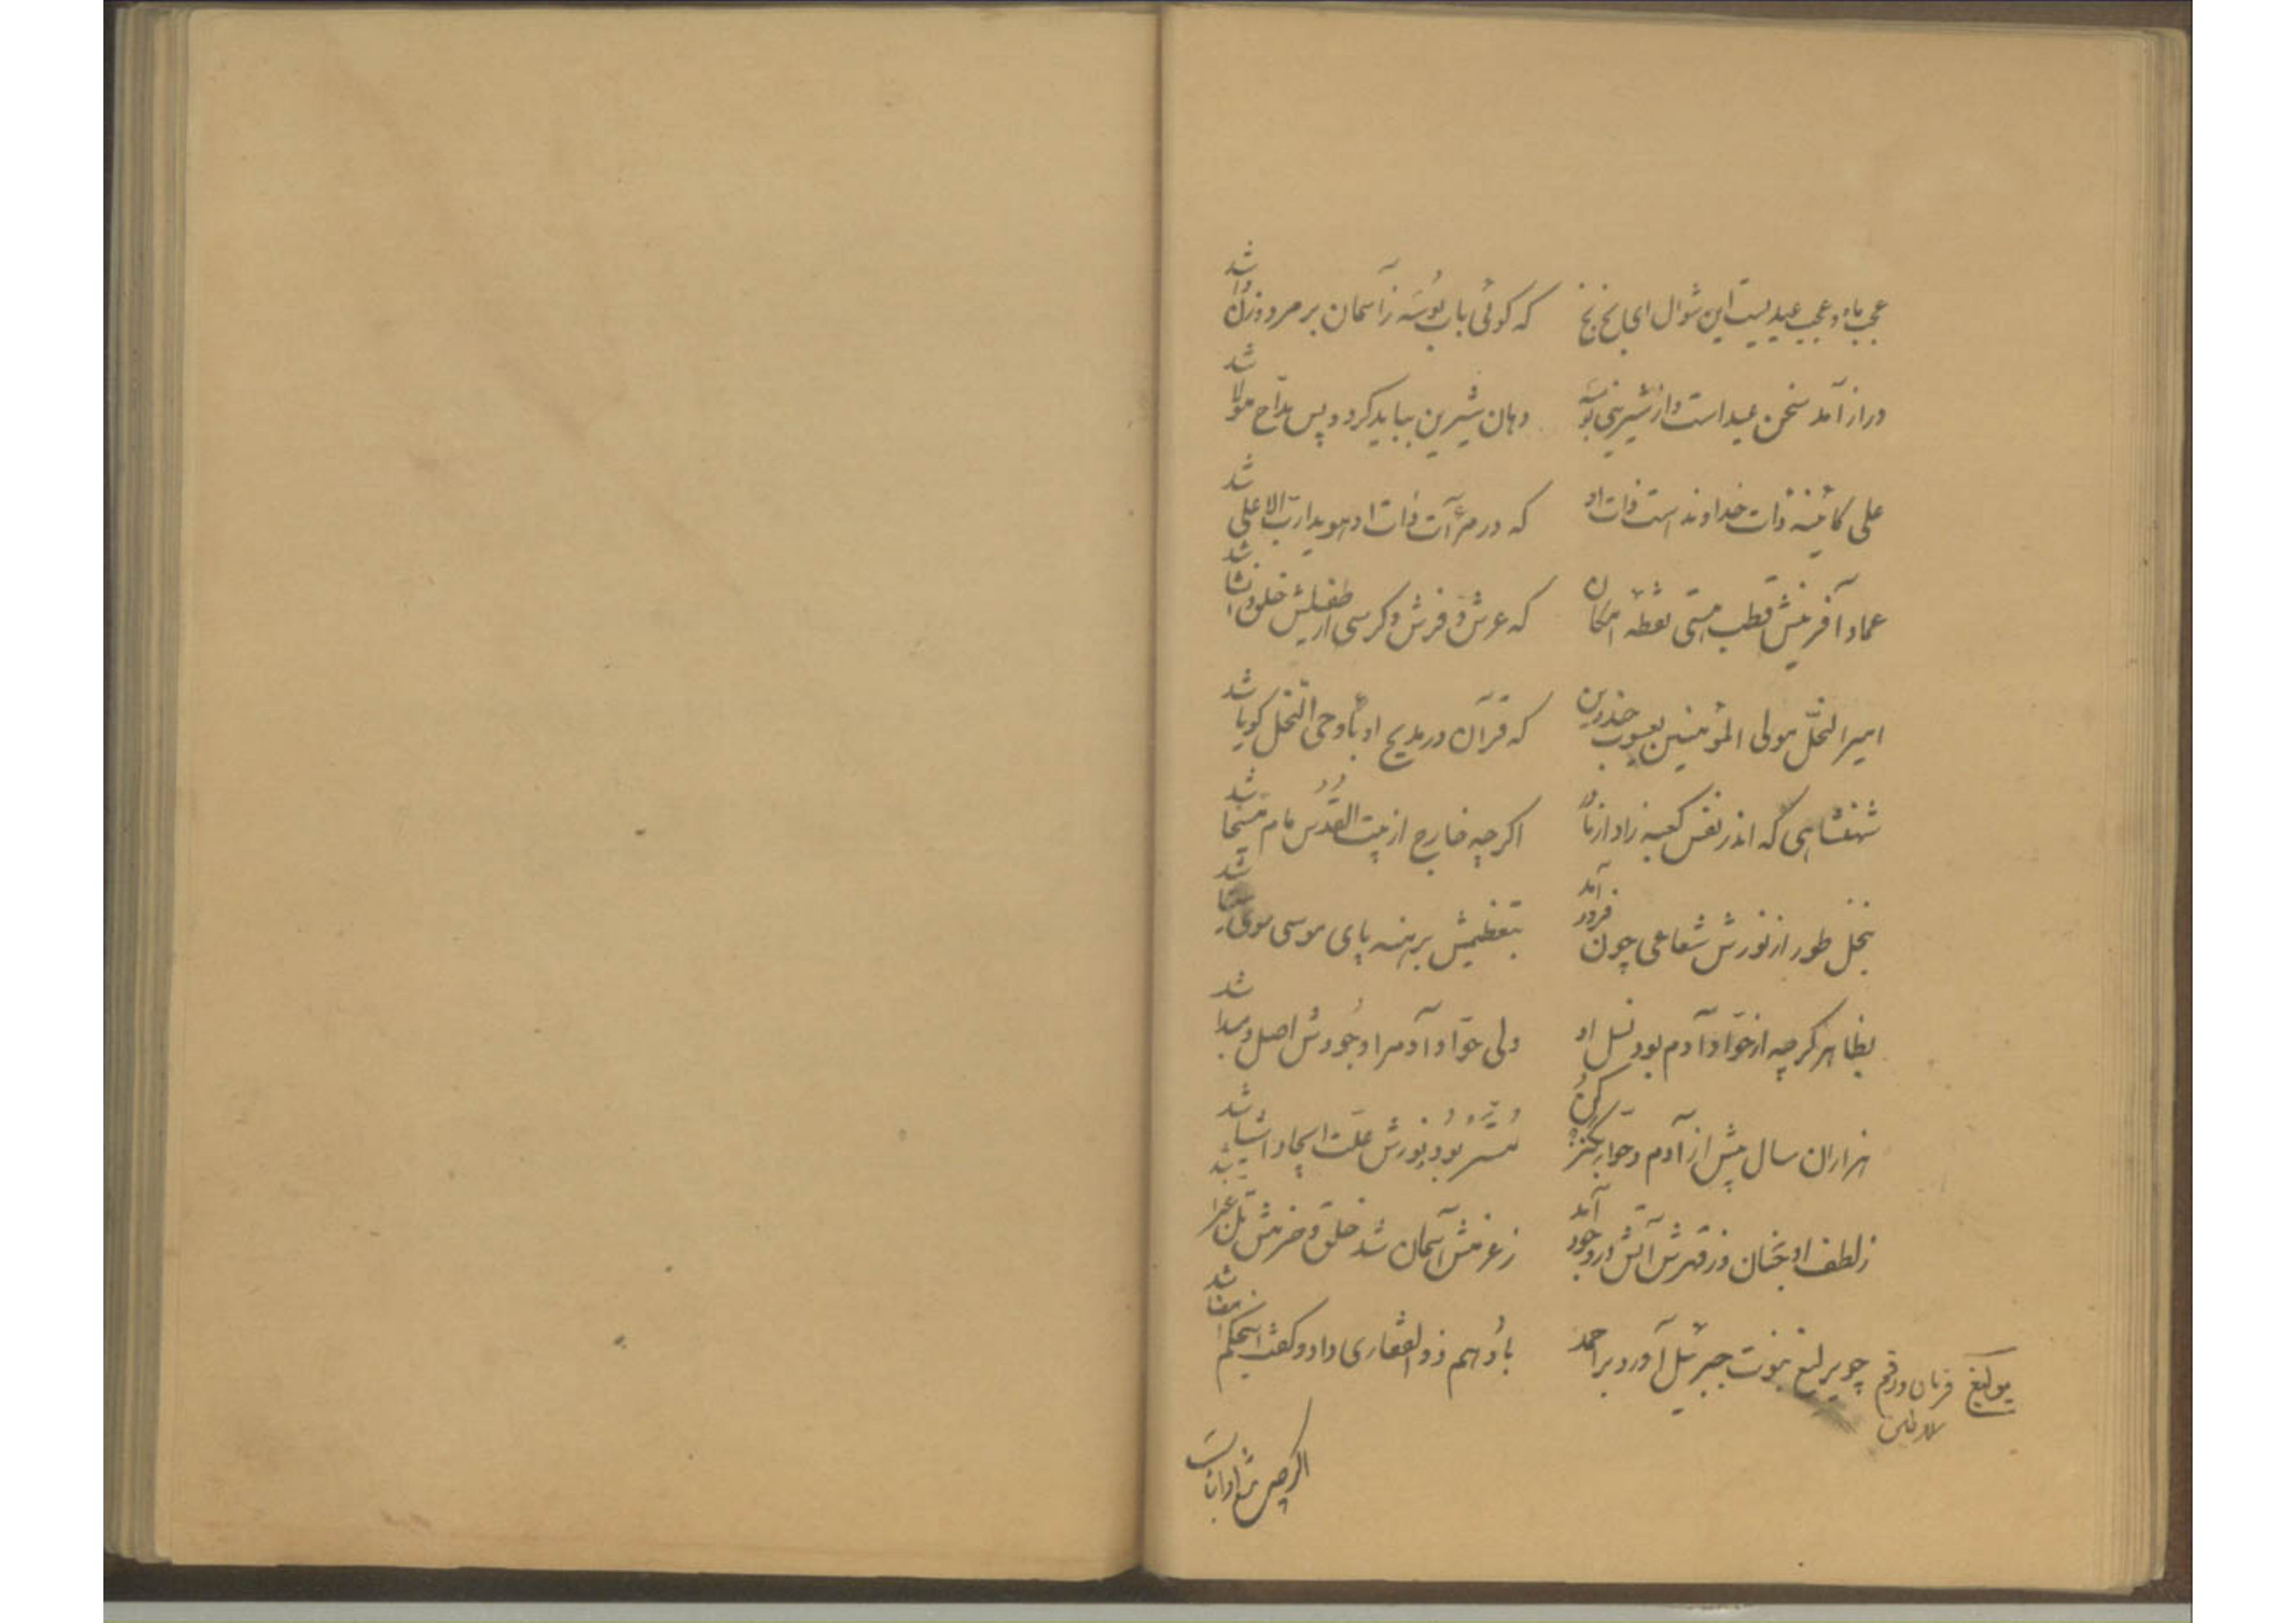 عجب ماه و عجب عیدیست این شوال ای بخ بخ که گوئی باب بوسه ز آسمان بر مرد و زن وا شد
دراز آمد سخن عید است و از شیرینی بوسه دهان شیرین بباید کرد و پس مداح مولا شد
علی کائینه ذات خداوند است ذات او که در مرآت ذات او هویدا رب الاعلی شد
عماد آفرینش قطب هستی نقطه امکان که عرش و فرش و کرسی از طفیلش خلق و انشا شد
امیر النحل مولی المؤمنین یعسوب که قرآن در مدیح او باوحی النحل گویا شد
شهنشاهی که اندر نفس کعبه زاد از مادر اگرچه خارج از بیت القدس مام مسیحا شد
بنخل طور از نورش شعاعی چون فرود آمد بتعظیمش برهنه پای موسی سوی سینا شد
بظاهر گرچه از حوا و آدم بود نسل او ولی حوا و آدم را وجودش اصل و مبدا شد
هزاران سال پیش از آدم و حوا بود نورش علت ایجاد اشیا شد
ز لطف او جنان وز قهرش آتش در وجود آمد ز عزمش آسمان شد خلق و حزمش تل غبرا شد
چو یرلیغ نبوت جبرئیل آورد بر احمد باو هم ذوالفقاری داد و گفت امضا شد
یرلیغ فرمان و رقم سلاطین